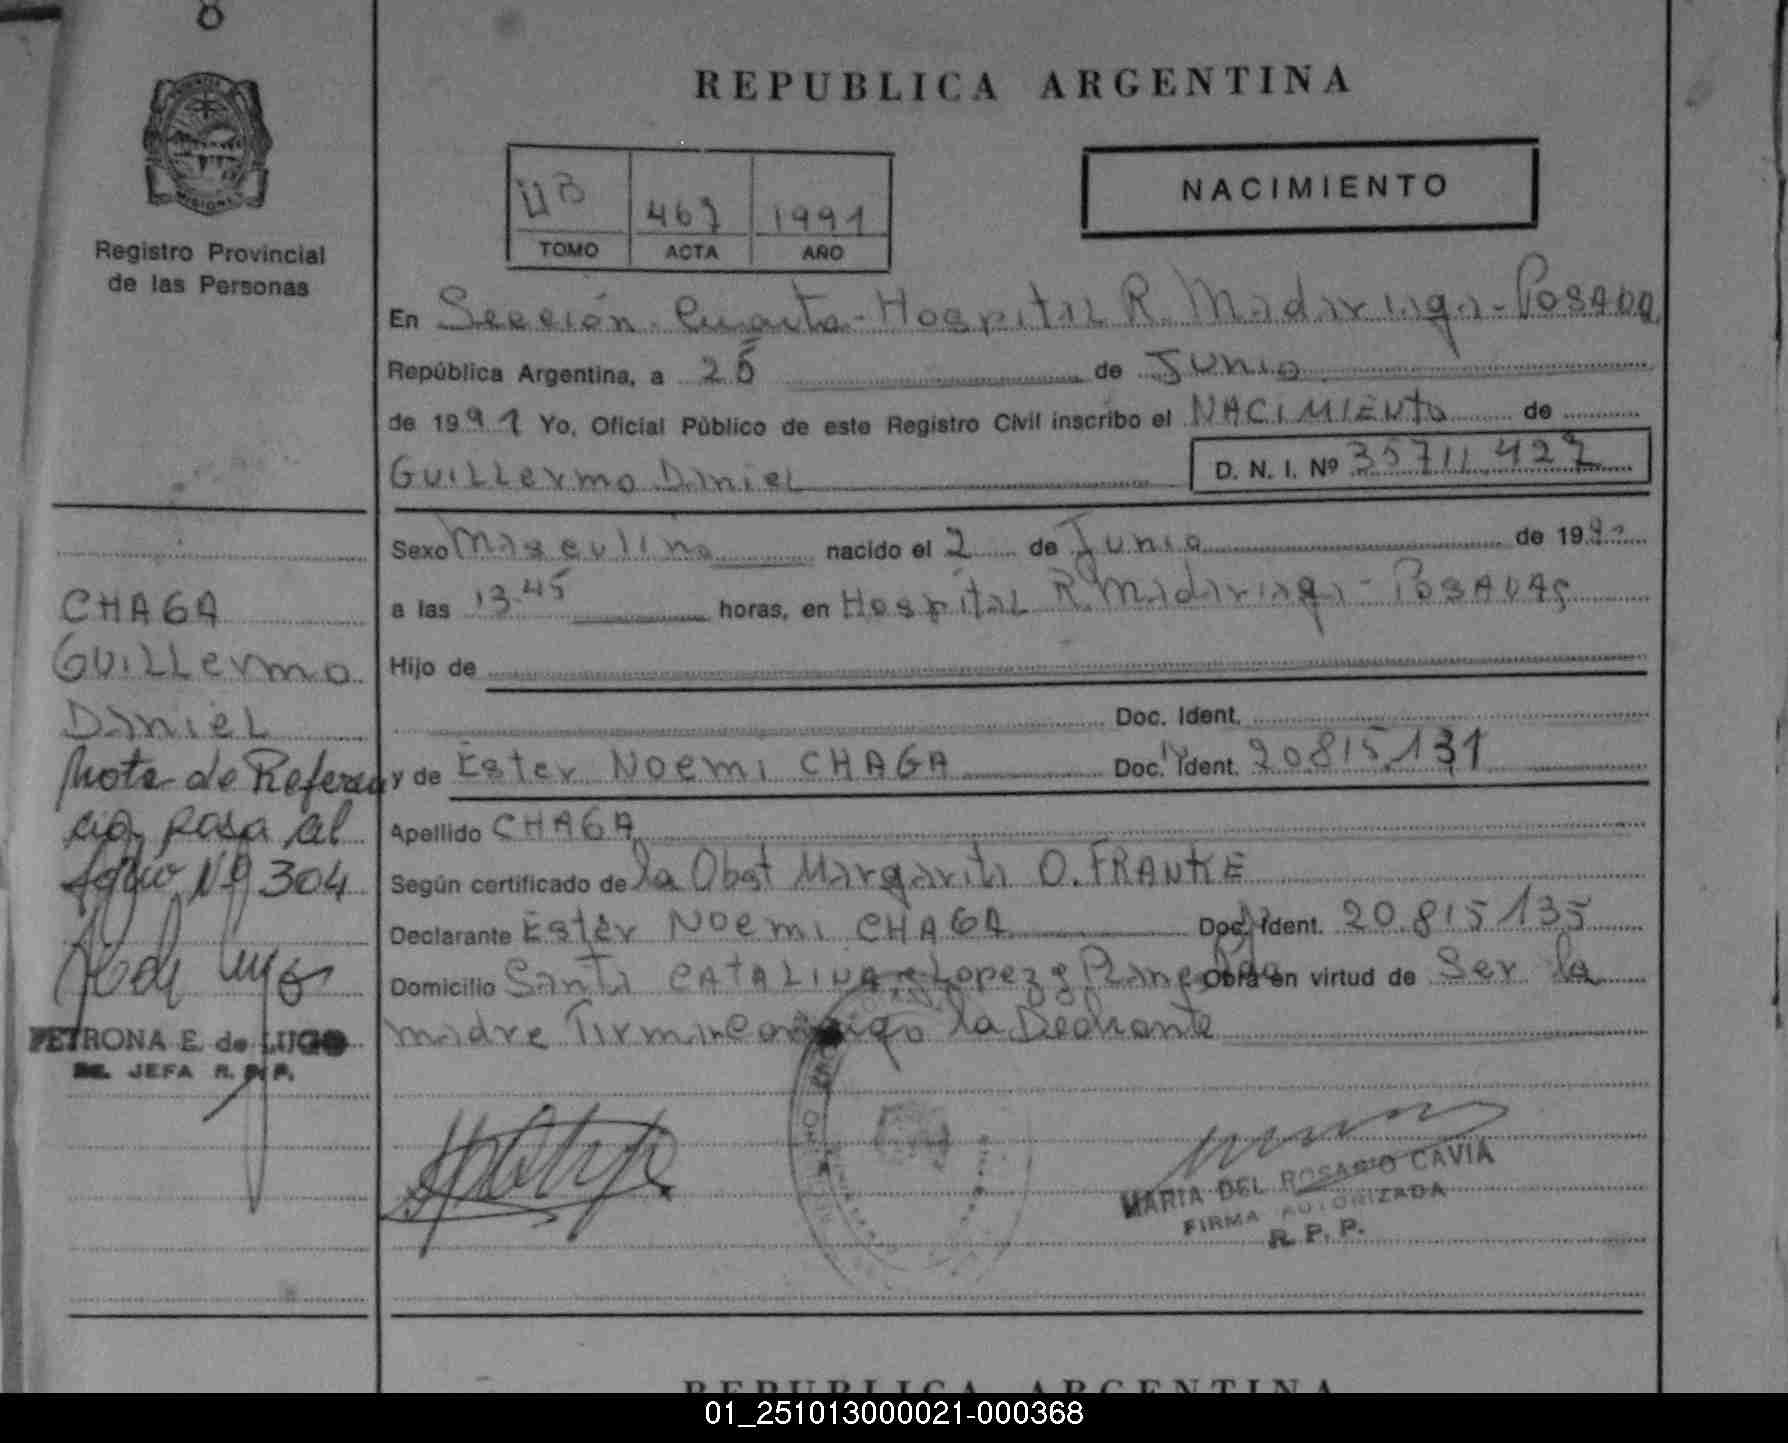 8
REPUBLICA ARGENTINA
NACIMIENTO
467 1991
TOMO ACTA AÑO
Registro Provincial
de las Personas
En Sección Cuarta - Hospital R. Madariaga - POSADA
República Argentina, a 25 de Junio
de 1991 Yo, Oficial Público de este Registro Civil inscribo el NACIMIENTO de
GUILLermo DanieL D. N. I. Nº 35711.427
Sexo Masculino nacido el 2 de Junio de 199
a las 13.45 horas, en HospitaL R. Madariaga - POSADAS
Hijo de
Doc. Ident.
y de Ester Noemi CHAGA Doc. Ident. 20815.131
Apellido CHAGA
Según certificado de la Obst Margarita O. FRANKE
Declarante Ester Noemi CHAGA Doc. Ident. 20.815.135
Domicilio Santa CATALINA Lopez y Planes Obra en virtud de Ser la
madre Firman conmigo la
CHAGA
GUILLermo
DanieL
Nota de Referen
cia pasa al
folio Nº 304
PETRONA E. de LUGO
JEFA R. P. P.
MARIA DEL ROSARIO CAVIA
FIRMA AUTORIZADA
R. P. P.
REPUBLICA ARGENTINA
01_251013000021-000368